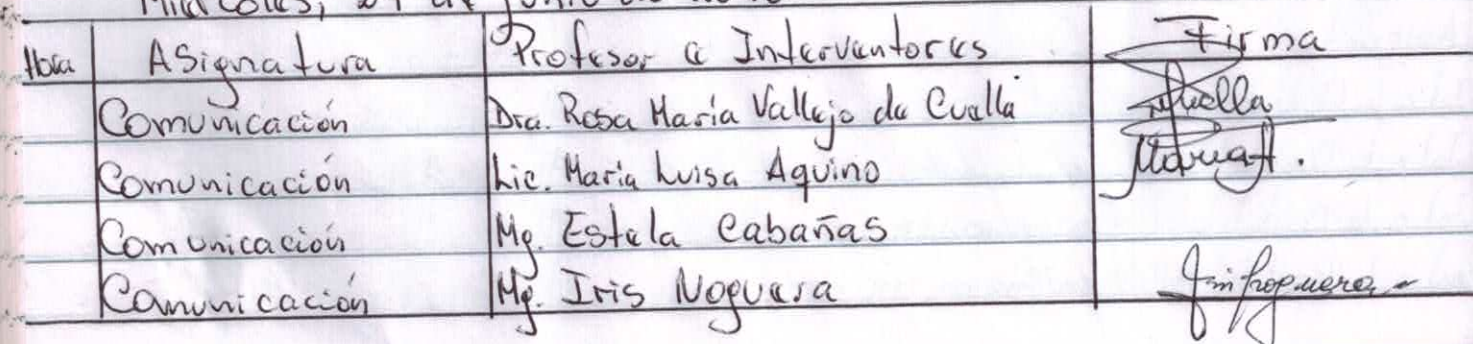 Hora Asignatura Profesor e Interventores Firma
Comunicación Dra. Rosa María Vallejo de Cuella
Comunicación Lic. María Luisa Aquino
Comunicación Mg. Estela Cabañas
Comunicación Mg. Iris Noguera